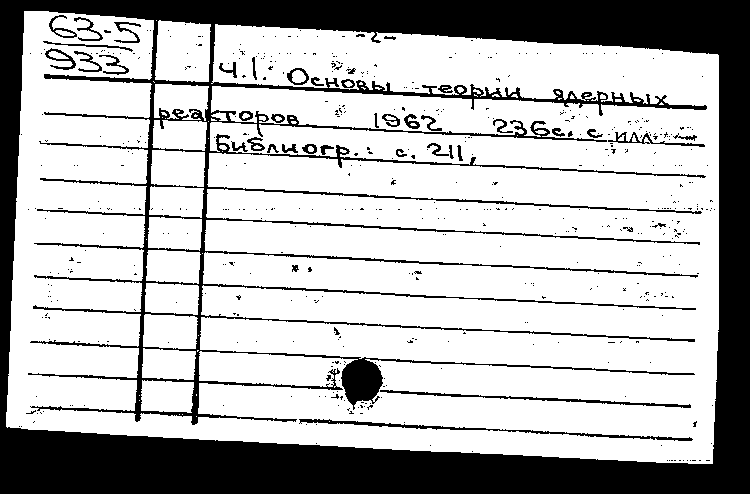 63-5
933
-2-
Ч.1. Основы теории ядерных
реакторов 1962 236с. с илл.
Библиогр.: с. 211,